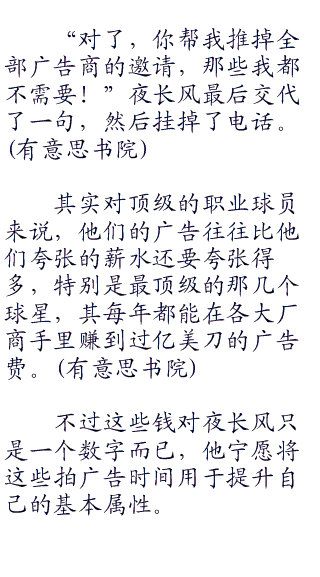 “对了，你帮我推掉全
部广告商的邀请，那些我都
不需要！”夜长风最后交代
了一句，然后挂掉了电话。
(有意思书院)
其实对顶级的职业球员
来说，他们的广告往往比他
们夸张的薪水还要夸张得
多，特别是最顶级的那几个
球星，其每年都能在各大厂
商手里赚到过亿美刀的广告
费。(有意思书院)
不过这些钱对夜长风只
是一个数字而已，他宁愿将
这些拍广告时间用于提升自
己的基本属性。